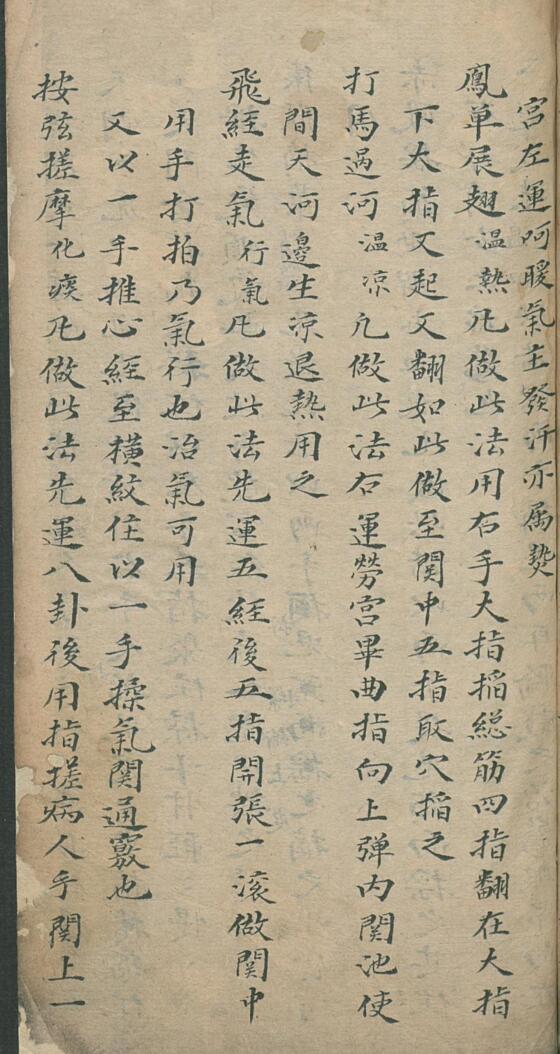 宮左運呵暖氣主發汗亦属𤍠
鳳单展翅温热凢做此法用右手大指掐総筋四指翻在大指
下大指又起又翻如此做至関中五指取穴掐之
打馬過河温凉凢做此法右運勞宫畢曲指向上弹内関池使
間天河邊生凉退热用之
飛經走氣行氣凢做此法先運五經後五指開張一滚做関中
用手打拍乃氣行也治氣可用
又以一手推心經至横紋住以一手揉氣関通竅也
按弦搓摩化痰凢做此法先運八卦後用指搓病人手関上一